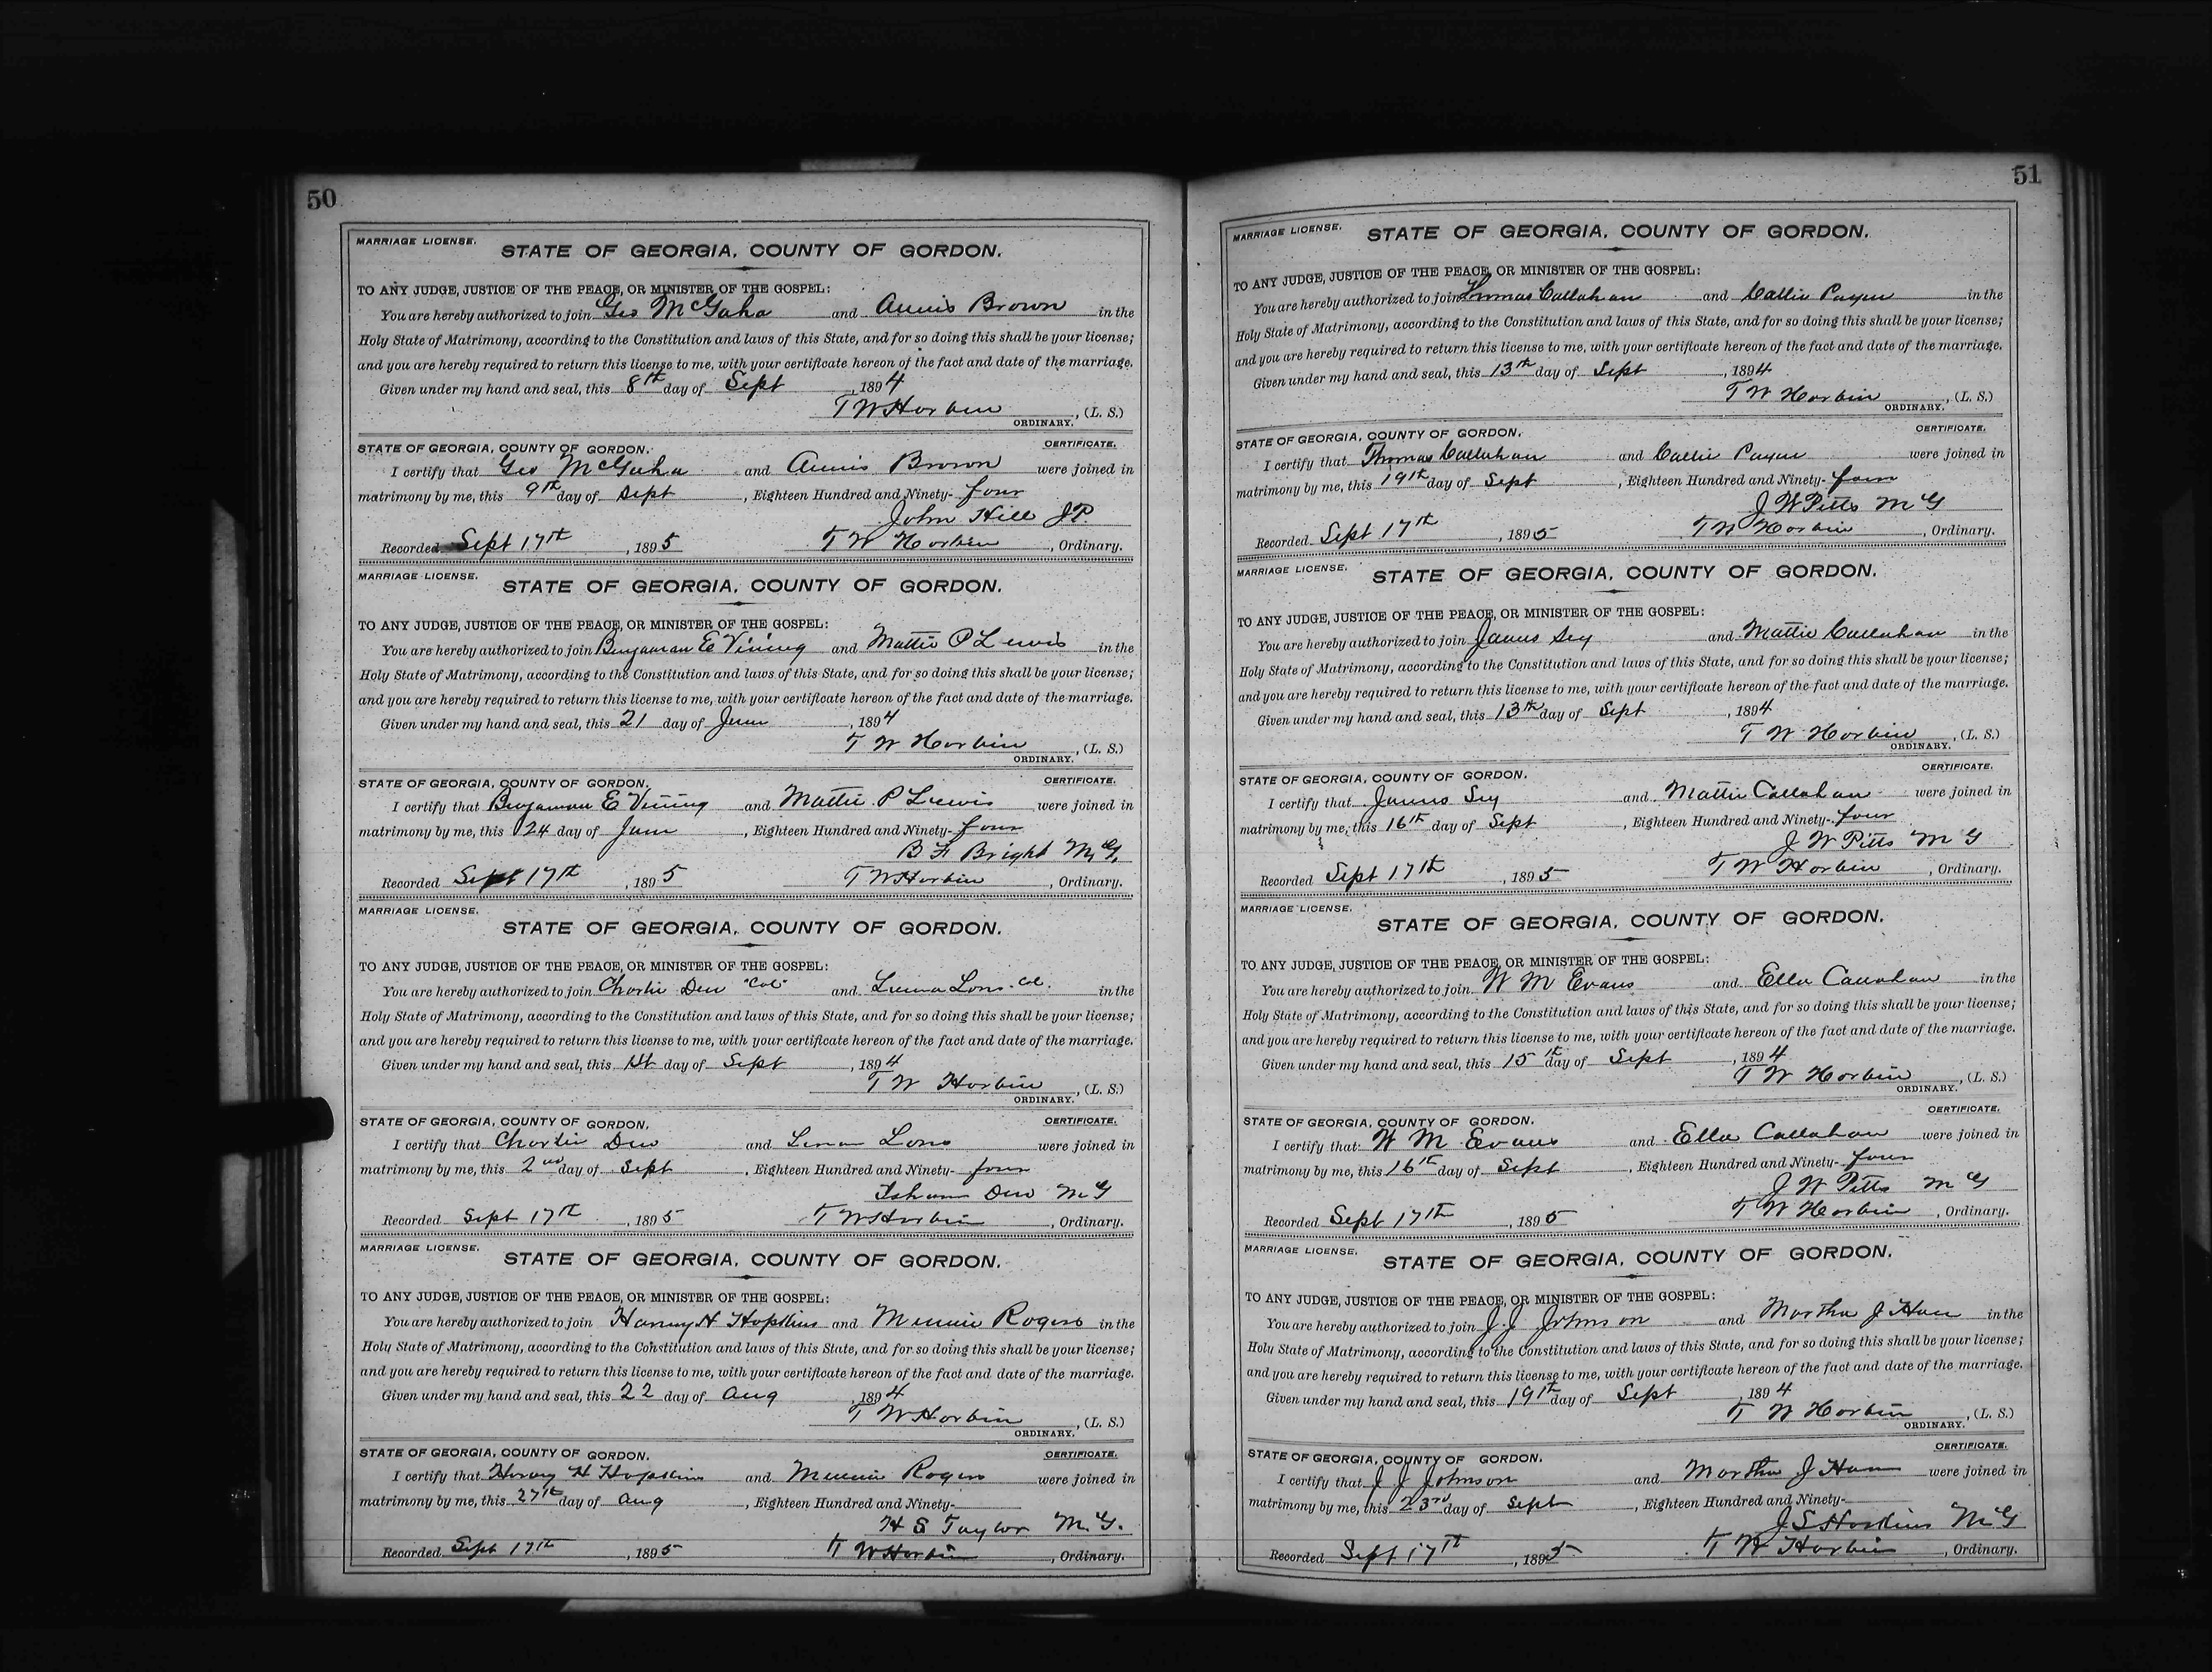 50
MARRIAGE LICENSE.
STATE OF GEORGIA, COUNTY OF GORDON.
TO ANY JUDGE, JUSTICE OF THE PEACE, OR MINISTER OF THE GOSPEL:
You are hereby authorized to join Geo McGaha and Annis Brown in the
Holy State of Matrimony, according to the Constitution and laws of this State, and for so doing this shall be your license;
and you are hereby required to return this license to me, with your certificate hereon of the fact and date of the marriage.
Given under my hand and seal, this 8th day of Sept, 1894
T W Harbin, (L. S.)
ORDINARY.
STATE OF GEORGIA, COUNTY OF GORDON. CERTIFICATE.
I certify that Geo McGaha and Annis Brown were joined in
matrimony by me, this 9th day of Sept, Eighteen Hundred and Ninety-four
John Hill J.P.
Recorded Sept 17th, 1895 T W Harbin, Ordinary.
MARRIAGE LICENSE.
STATE OF GEORGIA, COUNTY OF GORDON.
TO ANY JUDGE, JUSTICE OF THE PEACE, OR MINISTER OF THE GOSPEL:
You are hereby authorized to join Benjaman E Vining and Mattie P Lewis in the
Holy State of Matrimony, according to the Constitution and laws of this State, and for so doing this shall be your license;
and you are hereby required to return this license to me, with your certificate hereon of the fact and date of the marriage.
Given under my hand and seal, this 21 day of June, 1894
T W Harbin, (L. S.)
ORDINARY.
STATE OF GEORGIA, COUNTY OF GORDON. CERTIFICATE.
I certify that Benjaman E Vining and Mattie P Lewis were joined in
matrimony by me, this 24 day of June, Eighteen Hundred and Ninety-four
B F Bright M.G.
Recorded Sept 17th, 1895 T W Harbin, Ordinary.
MARRIAGE LICENSE.
STATE OF GEORGIA, COUNTY OF GORDON.
TO ANY JUDGE, JUSTICE OF THE PEACE, OR MINISTER OF THE GOSPEL:
You are hereby authorized to join Charlie Dew "Col" and Col. in the
Holy State of Matrimony, according to the Constitution and laws of this State, and for so doing this shall be your license;
and you are hereby required to return this license to me, with your certificate hereon of the fact and date of the marriage.
Given under my hand and seal, this 1st day of Sept, 1894
T W Harbin, (L. S.)
ORDINARY.
STATE OF GEORGIA, COUNTY OF GORDON. CERTIFICATE.
I certify that Charlie Dew and were joined in
matrimony by me, this 2nd day of Sept, Eighteen Hundred and Ninety-four
Isham Dew M G
Recorded Sept 17th, 1895 T W Harbin, Ordinary.
MARRIAGE LICENSE.
STATE OF GEORGIA, COUNTY OF GORDON.
TO ANY JUDGE, JUSTICE OF THE PEACE, OR MINISTER OF THE GOSPEL:
You are hereby authorized to join H Hopkins and Minnie Rogers in the
Holy State of Matrimony, according to the Constitution and laws of this State, and for so doing this shall be your license;
and you are hereby required to return this license to me, with your certificate hereon of the fact and date of the marriage.
Given under my hand and seal, this 22 day of Aug, 1894
T W Harbin, (L. S.)
ORDINARY.
STATE OF GEORGIA, COUNTY OF GORDON. CERTIFICATE.
I certify that H Hopkins and Minnie Rogers were joined in
matrimony by me, this 27th day of Aug, Eighteen Hundred and Ninety-
H S Taylor M.G.
Recorded Sept 17th, 1895 T W Harbin, Ordinary.
51
MARRIAGE LICENSE.
STATE OF GEORGIA, COUNTY OF GORDON.
TO ANY JUDGE, JUSTICE OF THE PEACE, OR MINISTER OF THE GOSPEL:
You are hereby authorized to join Thomas Callahan and Callie Payne in the
Holy State of Matrimony, according to the Constitution and laws of this State, and for so doing this shall be your license;
and you are hereby required to return this license to me, with your certificate hereon of the fact and date of the marriage.
Given under my hand and seal, this 13th day of Sept, 1894
T W Harbin, (L. S.)
ORDINARY.
STATE OF GEORGIA, COUNTY OF GORDON. CERTIFICATE.
I certify that Thomas Callahan and Callie Payne were joined in
matrimony by me, this 19th day of Sept, Eighteen Hundred and Ninety-four
J W Pitts M G
Recorded Sept 17th, 1895 T W Harbin, Ordinary.
MARRIAGE LICENSE.
STATE OF GEORGIA, COUNTY OF GORDON.
TO ANY JUDGE, JUSTICE OF THE PEACE, OR MINISTER OF THE GOSPEL:
You are hereby authorized to join James and Mattie Callahan in the
Holy State of Matrimony, according to the Constitution and laws of this State, and for so doing this shall be your license;
and you are hereby required to return this license to me, with your certificate hereon of the fact and date of the marriage.
Given under my hand and seal, this 13th day of Sept, 1894
T W Harbin, (L. S.)
ORDINARY.
STATE OF GEORGIA, COUNTY OF GORDON. CERTIFICATE.
I certify that James and Mattie Callahan were joined in
matrimony by me, this 16th day of Sept, Eighteen Hundred and Ninety-four
J W Pitts M G
Recorded Sept 17th, 1895 T W Harbin, Ordinary.
MARRIAGE LICENSE.
STATE OF GEORGIA, COUNTY OF GORDON.
TO ANY JUDGE, JUSTICE OF THE PEACE, OR MINISTER OF THE GOSPEL:
You are hereby authorized to join W M Evans and Ella Callahan in the
Holy State of Matrimony, according to the Constitution and laws of this State, and for so doing this shall be your license;
and you are hereby required to return this license to me, with your certificate hereon of the fact and date of the marriage.
Given under my hand and seal, this 15th day of Sept, 1894
T W Harbin, (L. S.)
ORDINARY.
STATE OF GEORGIA, COUNTY OF GORDON. CERTIFICATE.
I certify that W M Evans and Ella Callahan were joined in
matrimony by me, this 16th day of Sept, Eighteen Hundred and Ninety-four
J W Pitts M G
Recorded Sept 17th, 1895 T W Harbin, Ordinary.
MARRIAGE LICENSE.
STATE OF GEORGIA, COUNTY OF GORDON.
TO ANY JUDGE, JUSTICE OF THE PEACE, OR MINISTER OF THE GOSPEL:
You are hereby authorized to join J. J Johnson and Martha J in the
Holy State of Matrimony, according to the Constitution and laws of this State, and for so doing this shall be your license;
and you are hereby required to return this license to me, with your certificate hereon of the fact and date of the marriage.
Given under my hand and seal, this 19th day of Sept, 1894
T W Harbin, (L. S.)
ORDINARY.
STATE OF GEORGIA, COUNTY OF GORDON. CERTIFICATE.
I certify that J J Johnson and Martha J were joined in
matrimony by me, this 23rd day of Sept, Eighteen Hundred and Ninety-
J S Hoskins M G
Recorded Sept 17th, 1895 T W Harbin, Ordinary.